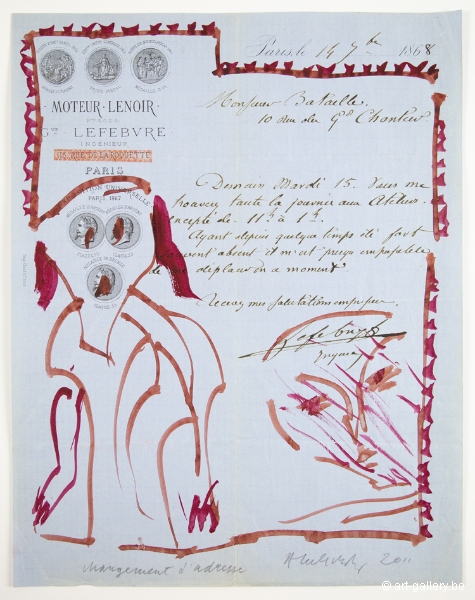 Paris, le 14 7bre 1868
MOTEUR-LENOIR
Gve LEFEBVRE
INGÉNIEUR
PARIS
EXPOSITION UNIVERSELLE
PARIS 1867
Monsieur Bataille.
10 rue des Gds
Demain Mardi 15. Vous me
trouverez toute la journée aux Ateliers.
excepté de 11h à 1h.
Ayant depuis quelque temps été fort
souvent absent il m'est presqu'impossible
de déplacer en ce moment
Recevez mes salutations empressées.
Lefebvre
changement d'adresse
Alechinsky 2011
© art-gallery.be